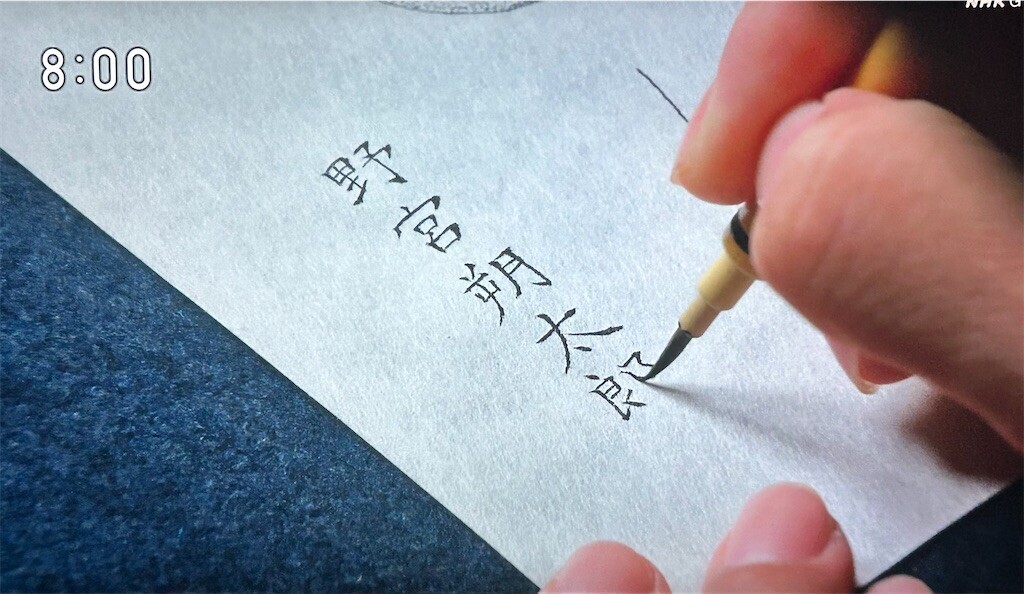 8:00
NHK G
野宮朔太郎